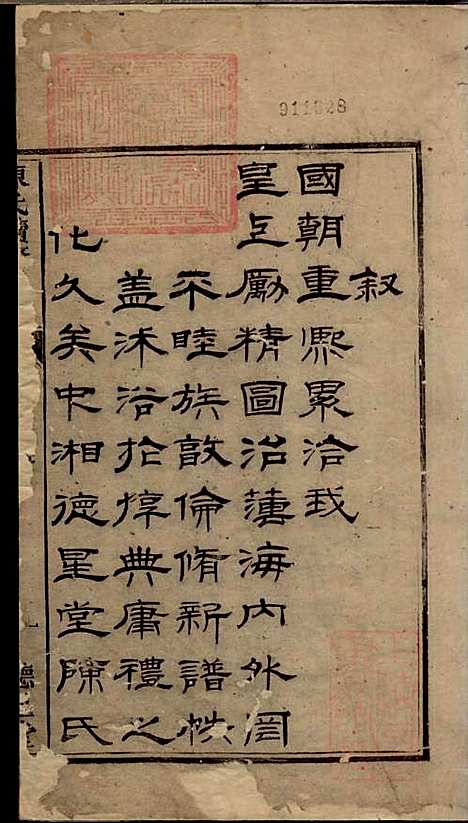 叙
國朝重熙累洽我
皇上勵精圖治薄海內外罔
不睦族敦倫脩新譜帙
蓋沐浴於惇典庸禮之
化久矣中湘德星堂陳氏
911028